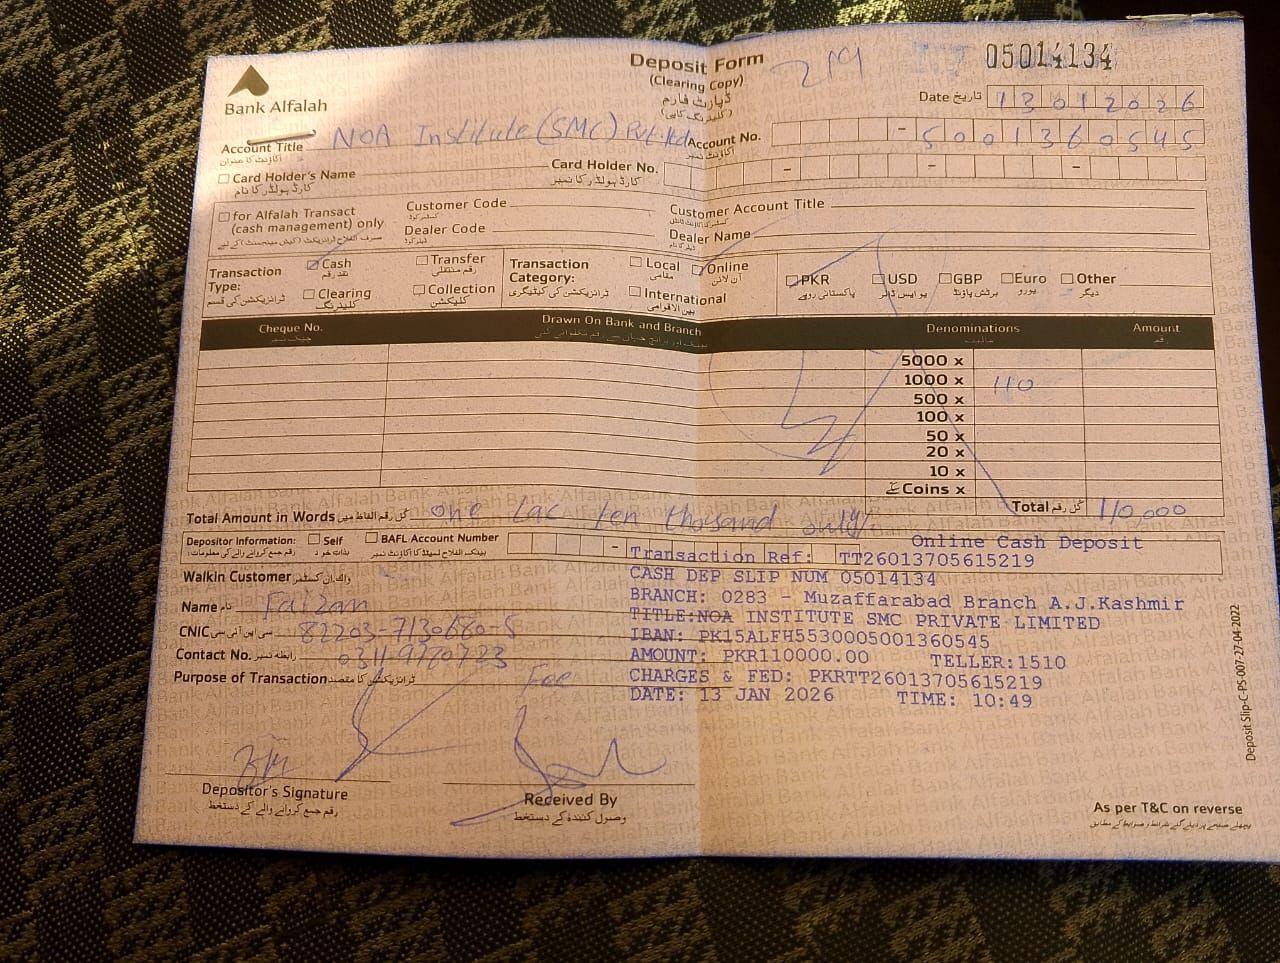 Deposit Form
(Clearing Copy)
ڈپازٹ فارم
(کلیئرنگ کاپی)
219
05014134
Bank Alfalah
Date تاریخ 13012026
Account Title NOA Institute (SMC) Pvt. Ltd
اکاؤنٹ کا عنوان
Account No. - 5001360545
اکاؤنٹ نمبر
Card Holder's Name
کارڈ ہولڈر کا نام
Card Holder No. - - -
کارڈ ہولڈر کا نمبر
for Alfalah Transact
(cash management) only
Customer Code
Dealer Code
Customer Account Title
Dealer Name
Transaction Type:
ٹرانزیکشن کی قسم
Cash نقد رقم
Transfer رقم منتقلی
Clearing کلیئرنگ
Collection کلیکشن
Transaction Category:
ٹرانزیکشن کی کیٹیگری
Local مقامی
Online آن لائن
International بین الاقوامی
PKR پاکستانی روپے
USD یو ایس ڈالر
GBP برٹش پاؤنڈ
Euro یورو
Other دیگر
Cheque No. Drawn On Bank and Branch Denominations Amount
چیک نمبر مالیت رقم
5000 x
1000 x 110
500 x
100 x
50 x
20 x
10 x
Coins x
Total کل رقم 110,000
Total Amount in Words کل رقم الفاظ میں one lac ten thousand only/-
Depositor Information:
Self بذات خود
BAFL Account Number
-
Online Cash Deposit
Transaction Ref: TT26013705615219
CASH DEP SLIP NUM 05014134
BRANCH: 0283 - Muzaffarabad Branch A.J.Kashmir
TITLE:NOA INSTITUTE SMC PRIVATE LIMITED
IBAN: PK15ALFH5530005001360545
AMOUNT: PKR110000.00 TELLER:1510
CHARGES & FED: PKRTT26013705615219
DATE: 13 JAN 2026 TIME: 10:49
Walkin Customer واک ان کسٹمر
Name نام Faizan
CNIC سی این آئی سی 82203-7130680-5
Contact No. رابطہ نمبر
Purpose of Transaction ٹرانزیکشن کا مقصد Fee
Depositor's Signature
رقم جمع کروانے والے کے دستخط
Received By
وصول کنندہ کے دستخط
As per T&C on reverse
Deposit Slip-C-PS-007-27-04-2022